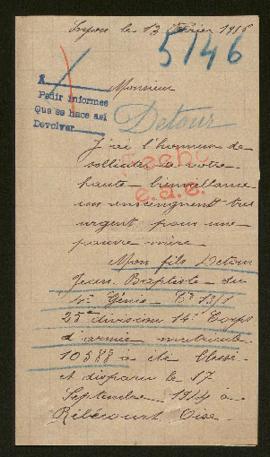 le 13 Février 1916
5146
A
Monsieur
Pedir informes
Que se hace así
Devolver
Detour
J'ai l'honneur de
solliciter de votre
haute bienveillance
un renseignement très
urgent pour une
pauvre mère.
Mon fils Detour
Jean Baptiste du
4e Génie Cie 13/1
25e division 14e Corps
d'armée matricule
10588 a été blessé
et disparu le 17
Septembre 1914 à
Ribécourt Oise